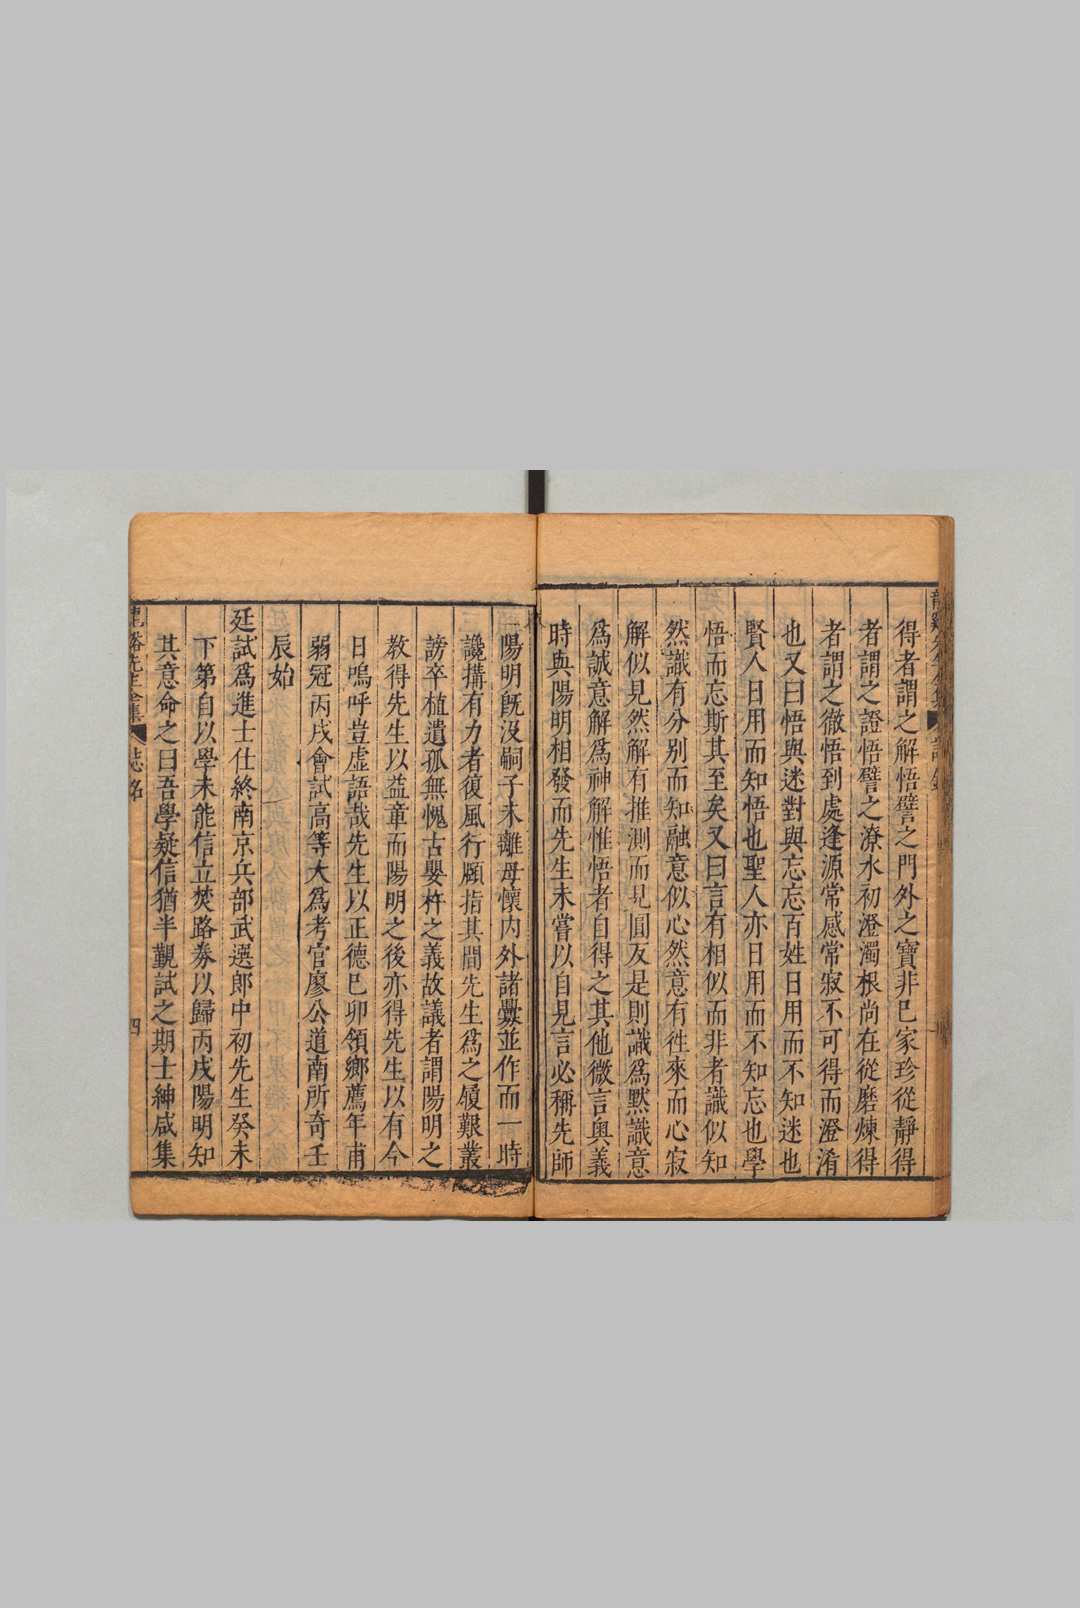 得者謂之解悟譬之門外之寶非已家珍從靜得
者謂之證悟譬之潦水初澄濁根尚在從磨煉得
者謂之徹悟到處逢源常感常寂不可得而澄淆
也又曰悟與迷對與忘忘百姓日用而不知迷也
賢人日用而知悟也聖人亦日用而不知忘也學
悟而忘斯其至矣又曰言有相似而非者識似知
然識有分別而知融意似心然意有徃來而心寂
解似見然解有推測而見圓反是則識為默識意
為誠意解為神解惟悟者自得之其他微言奥義
時與陽明相發而先生未嘗以自見言必稱先師
陽明既没嗣子未離母懷内外諸釁並作而一時
讒搆有力者復風行頤指其間先生為之履艱叢
謗卒植遺孤無愧古嬰杵之義故議者謂陽明之
教得先生以益章而陽明之後亦得先生以有今
日嗚呼豈虛語哉先生以正德已卯領鄉薦年甫
弱冠丙戌會試高等大為考官廖公道南所奇壬
辰始
廷試為進士仕終南京兵部武選郎中初先生癸未
下第自以學未能信立焚路劵以歸丙戌陽明知
其意命之曰吾學疑信猶半覲試之期士紳咸集
龍谿先生全集
誌名
四